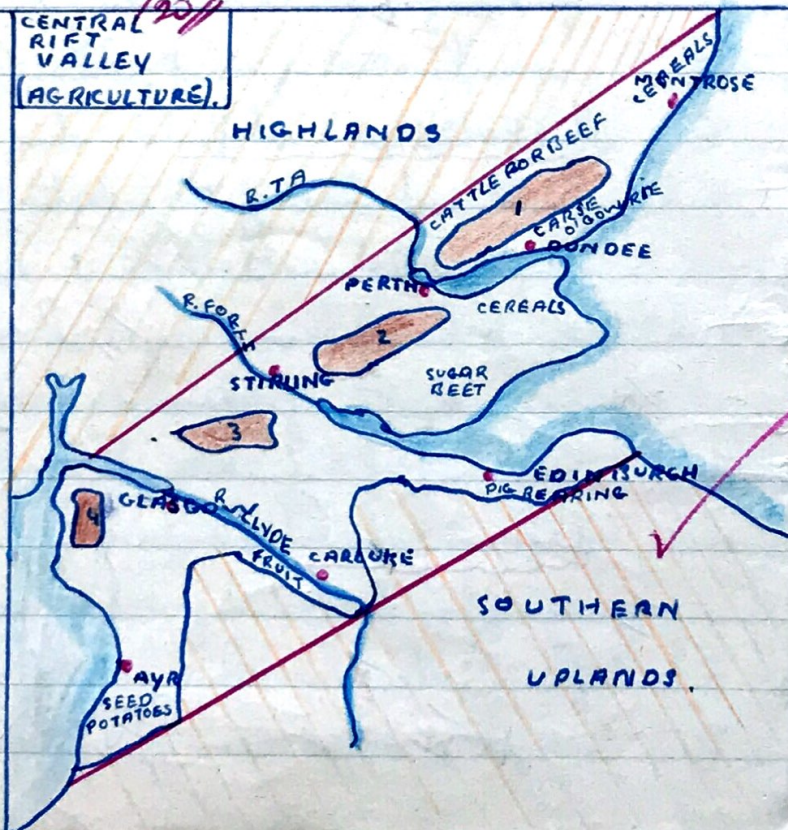 20
CENTRAL
RIFT
VALLEY
(AGRICULTURE).
HIGHLANDS
CEREALS
MONTROSE
R. TA
CATTLE FOR BEEF
1
CARSE
O' GOWRIE
DUNDEE
PERTH
CEREALS
R. FORTH
2
STIRLING
SUGAR
BEET
3
EDINBURGH
PIG REARING
4
GLASGO
R. CLYDE
FRUIT
CARLUKE
SOUTHERN
UPLANDS.
AYR
SEED
POTATOES